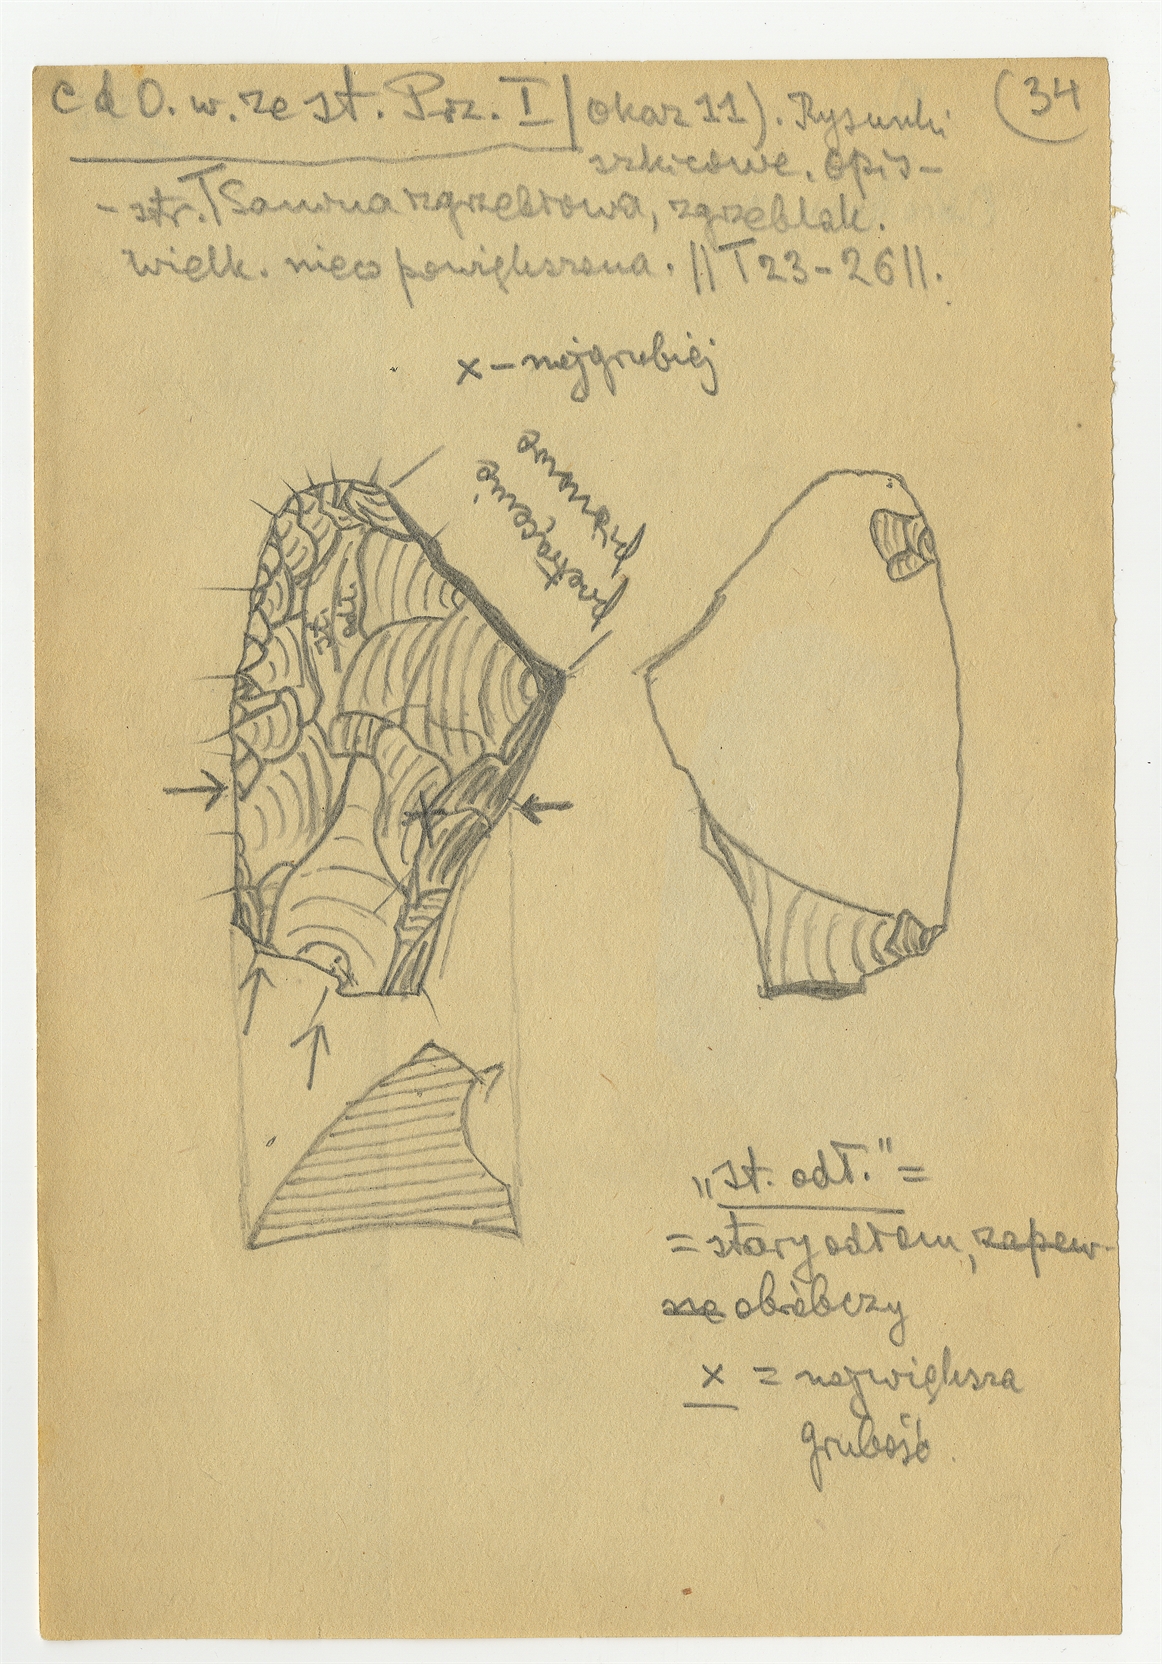 c d O. w. ze st. Prz. I (okaz 11). Rysunki (34
szkicowe. Opis-
- str. T Sawina zgrzebłowa, zgrzeblak.
Wielk. nieco powiększona. || T 23-26 ||.
x – najgrubiej
przetrącenie
pionowe
st. odł.
"st. odł." =
= stary odłam, zapew-
ne obróbczy
x = największa
grubość.